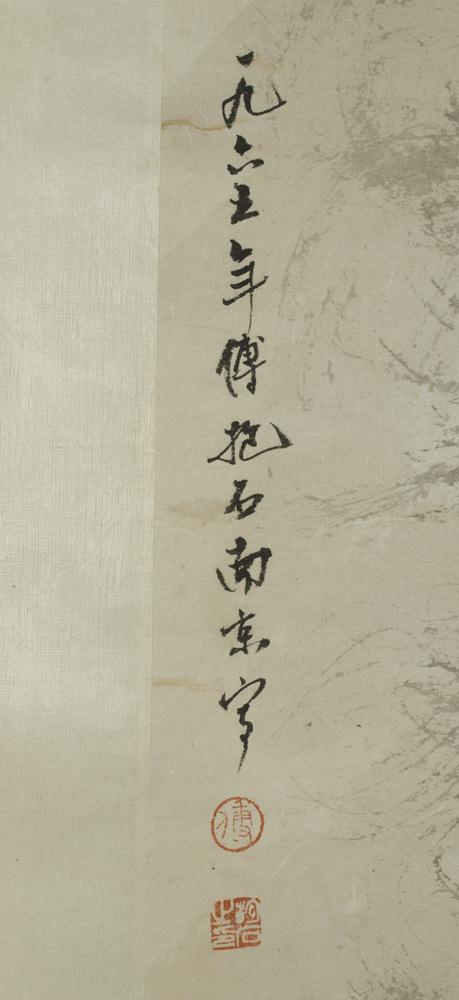 一九六五年傅抱石南京寫
傅
抱石之印